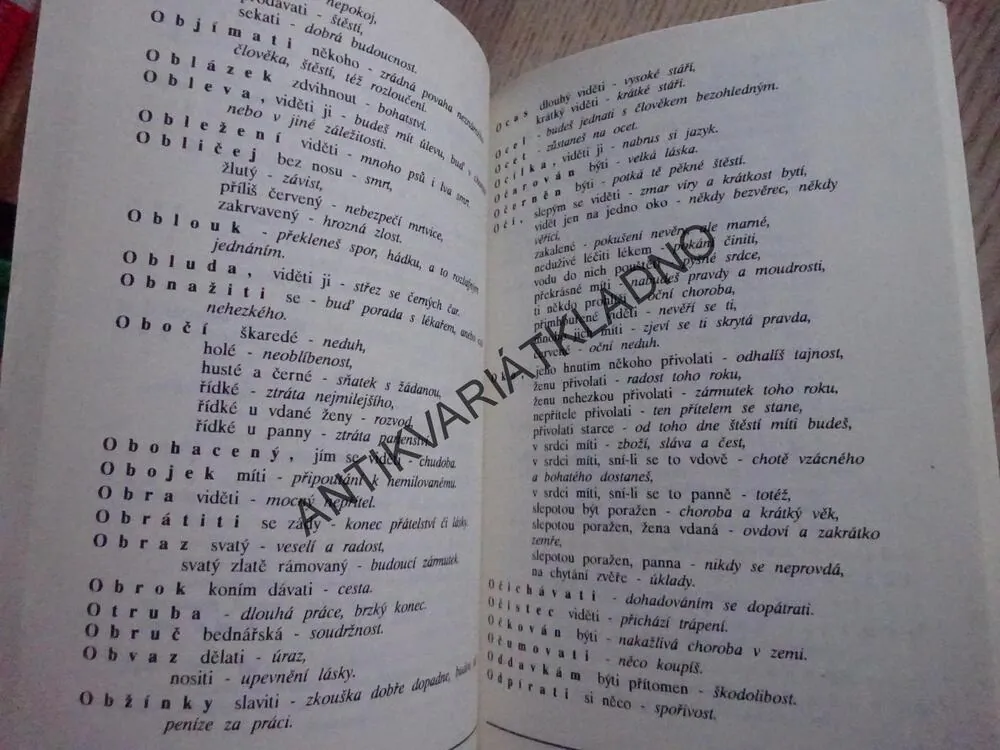 nepokoj,
prodávati - štěstí,
sekati - dobrá budoucnost.
Objímati někoho - zrádná povaha neznámého
člověka, štěstí, též rozloučení.
Oblázek zdvihnout - bohatství.
Obleva, viděti ji - budeš mít úlevu, buď v
nebo v jiné záležitosti.
Obležení viděti - mnoho psů i lva smrt.
Obličej bez nosu - smrt,
žlutý - závist,
příliš červený - nebezpečí mrtvice,
zakrvavený - hrozná zlost.
Oblouk - překleneš spor, hádku, a to rozšafným
jednáním.
Obluda, viděti ji - střez se černých čar.
Obnažiti se - buď porada s lékařem, anebo
nehezkého.
Obočí škaredé - neduh,
holé - neoblíbenost,
husté a černé - sňatek s žádanou,
řídké - ztráta nejmilejšího,
řídké u vdané ženy - rozvod,
řídké u panny - ztráta panenství.
Obohacený, jím se viděti - chudoba.
Obojek míti - připoutání k nemilovanému.
Obra viděti - mocný nepřítel.
Obrátiti se zády - konec přátelství či lásky.
Obraz svatý - veselí a radost,
svatý zlatě rámovaný - budoucí zármutek.
Obrok koním dávati - cesta.
Otruba - dlouhá práce, brzký konec.
Obruč bednářská - soudržnost.
Obvaz dělati - úraz,
nositi - upevnění lásky.
Obžínky slaviti - zkouška dobře dopadne,
peníze za práci.
Ocas dlouhý viděti - vysoké stáří,
krátký viděti - krátké stáří.
Ocel - budeš jednati s člověkem bezohledným.
Ocet - zůstaneš na ocet.
Ocílka, viděti ji - nabrus si jazyk.
Očarován býti - velká láska.
Očerněn býti - potká tě pěkné štěstí.
Oči, slepým se viděti - zmar víry a krátkost bytí,
vidět jen na jedno oko - někdy bezvěrec, někdy
věřící,
zakalené - pokušení nevěry, ale marné,
neduživé léčiti lékem - pokání činiti,
vodu do nich pouštěti - pyšné srdce,
překrásné míti - nabudeš pravdy a moudrosti,
ti někdo prohlíží - oční choroba,
přimhouřené viděti - nevěří se ti,
mnoho jich míti - zjeví se ti skrytá pravda,
červené - oční neduh.
jeho hnutím někoho přivolati - odhalíš tajnost,
ženu přivolati - radost toho roku,
ženu nehezkou přivolati - zármutek toho roku,
nepřítele přivolati - ten přítelem se stane,
přivolati starce - od toho dne štěstí míti budeš,
v srdci míti - zboží, sláva a čest,
v srdci míti, sní-li se to vdově - chotě vzácného
a bohatého dostaneš,
v srdci míti, sní-li se to panně - totéž,
slepotou být poražen - choroba a krátký věk,
slepotou poražen, žena vdaná - ovdoví a zakrátko
zemře,
slepotou poražen, panna - nikdy se neprovdá,
na chytání zvěře - úklady.
Očichávati - dohadováním se dopátrati.
Očistec viděti - přichází trápení.
Očkován býti - nakažlivá choroba v zemi.
Očumovati - něco koupíš.
Oddavkám býti přítomen - škodolibost.
Odpírati si něco - spořivost.
ANTIKVARIÁTKLADNO